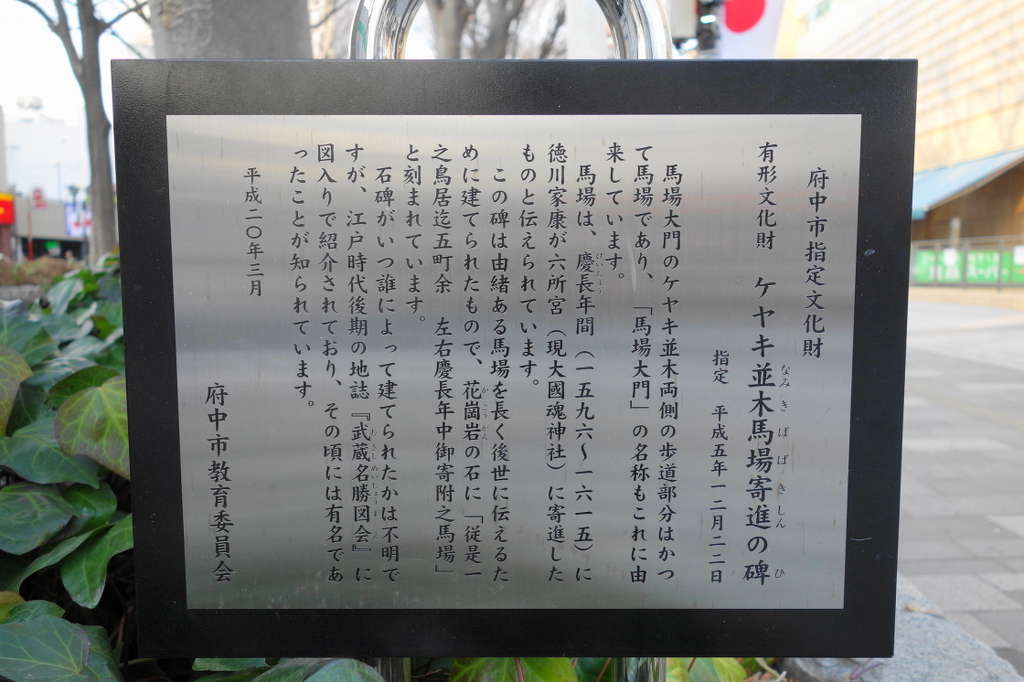 府中市指定文化財
有形文化財　ケヤキ並木馬場寄進の碑
なみきばばきしん　ひ
指定　平成五年一二月二二日
馬場大門のケヤキ並木両側の歩道部分はかつ
て馬場であり、「馬場大門」の名称もこれに由
来しています。
馬場は、慶長年間（一五九六～一六一五）に
けいちょう
徳川家康が六所宮（現大國魂神社）に寄進した
ものと伝えられています。
この碑は由緒ある馬場を長く後世に伝えるた
めに建てられたもので、花崗岩の石に「従是一
かこうがん
之鳥居迄五町余　左右慶長年中御寄附之馬場」
と刻まれています。
石碑がいつ誰によって建てられたかは不明で
すが、江戸時代後期の地誌『武蔵名勝図会』に
むさしめいしょうずえ
図入りで紹介されており、その頃には有名であ
ったことが知られています。
平成二〇年三月
府中市教育委員会